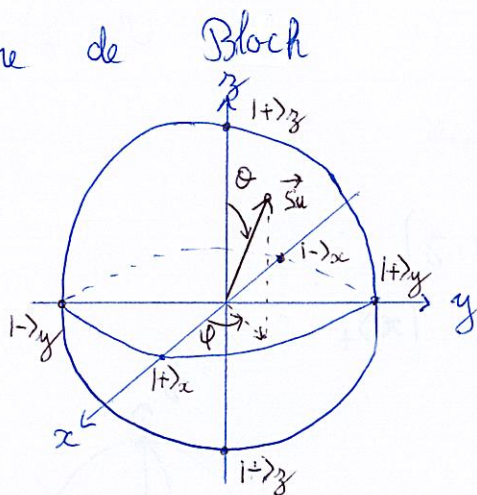 de Bloch
z
|+⟩z
θ
Su
|-⟩x
|+⟩y
|-⟩y
y
φ
|+⟩x
x
|-⟩z